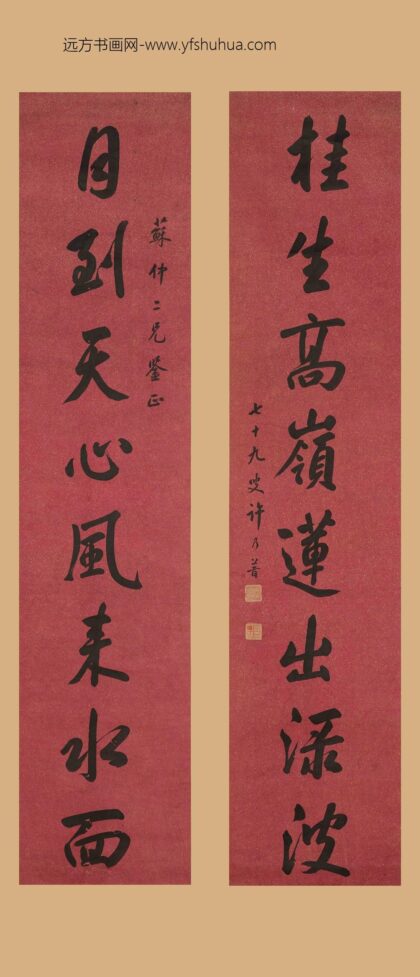 远方书画网-www.yfshuhua.com
桂生高嶺蓮出渌波
七十九叟许乃普
月到天心風来水面
蘇仲二兄鉴正